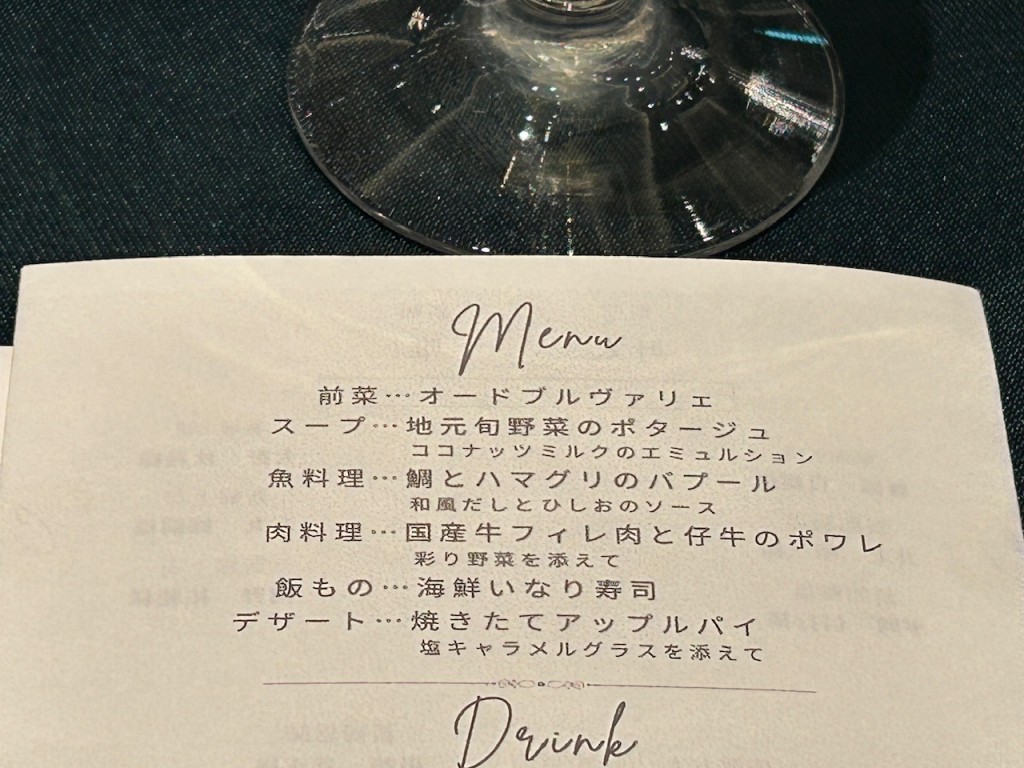 Menu
前菜…オードブルヴァリエ
スープ…地元旬野菜のポタージュ
ココナッツミルクのエミュルション
魚料理…鯛とハマグリのバプール
和風だしとひしおのソース
肉料理…国産牛フィレ肉と仔牛のポワレ
彩り野菜を添えて
飯もの…海鮮いなり寿司
デザート…焼きたてアップルパイ
塩キャラメルグラスを添えて
Drink